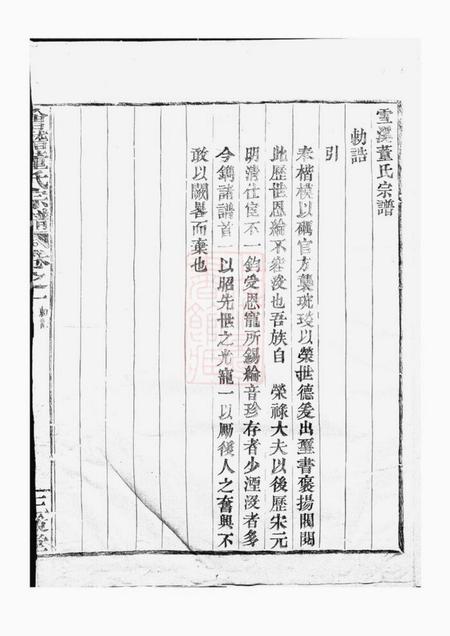 雪溪董氏宗譜
勅誥
引
奉楷模以礪官方襲琬琰以榮世德爰出璽書褒揚閥閱
此歷世恩綸不容沒也吾族自 榮祿大夫以後歷宋元
明清仕宦不一鈞受恩寵所錫綸音珍存者少湮沒者多
今鐫諸譜首一以昭先世之光寵一以勵後人之奮興不
敢以闕畧而棄也
董氏宗譜 卷之一 勅誥
三策堂